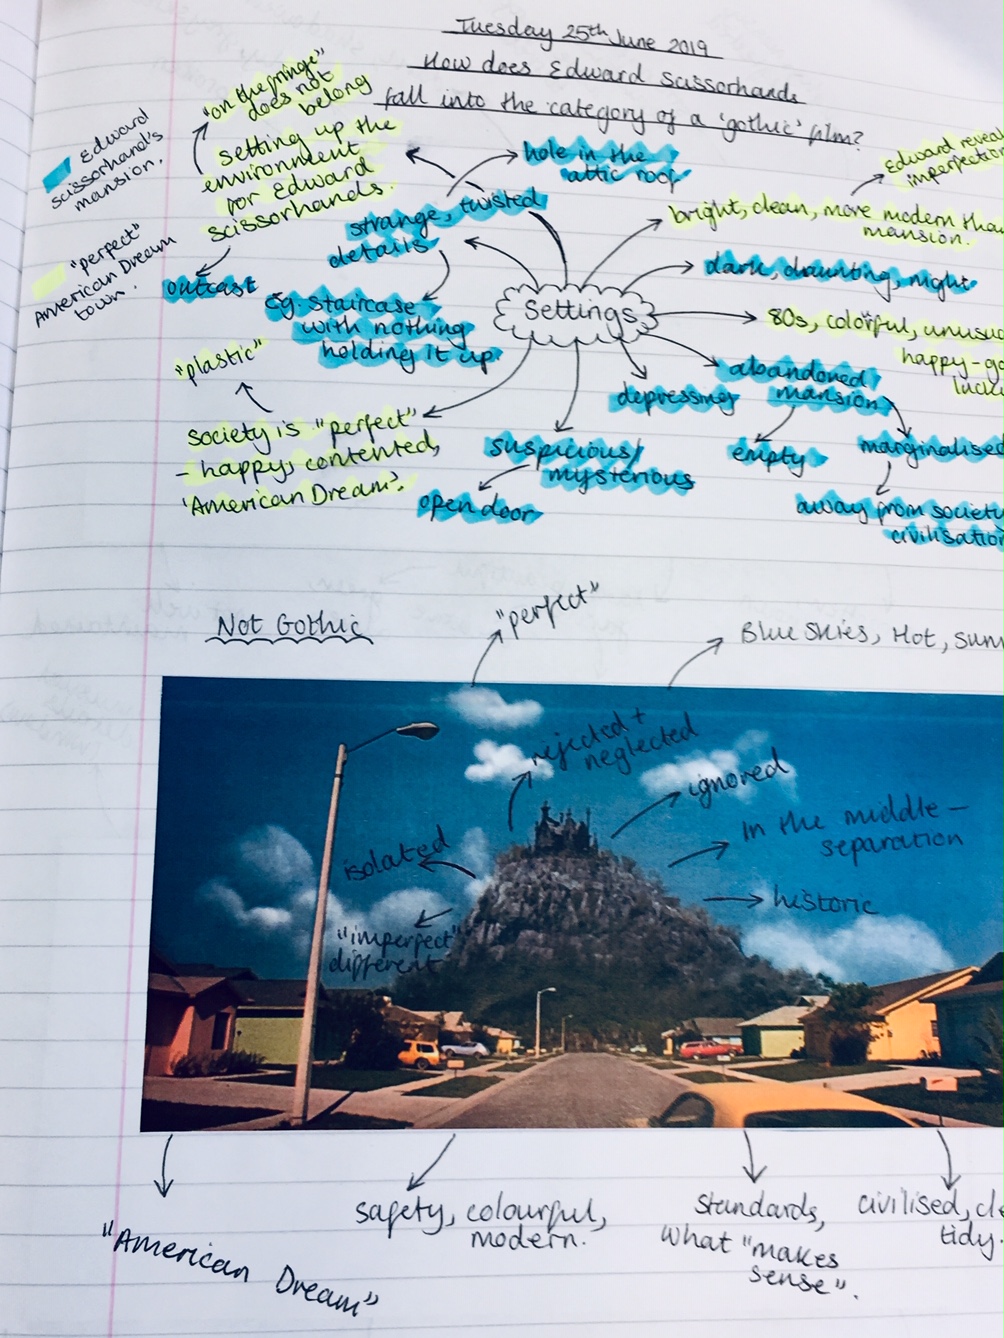 Tuesday 25th June 2019
How does Edward Scissorhands
fall into the category of a 'gothic' film?
Edward
scissorhand's
mansion.
"perfect"
American Dream
town.
"on the fringe"
does not
belong
setting up the
environment
for Edward
Scissorhands.
outcast
hole in the
attic roof
strange, twisted
details
eg. staircase
with nothing
holding it up.
Settings
Edward
imperfection
bright, clean, more modern than
mansion.
dark, daunting, night
80s, colorful,
happy-go
abandoned
mansion
depressing
empty
marginalised
away from society
"plastic"
society is "perfect"
- happy, contented,
'American Dream'.
suspicious/
mysterious
open door
Not Gothic
"perfect"
Blue Skies, Hot,
rejected +
neglected
ignored
isolated
In the middle -
separation
historic
"imperfect"
different
"American Dream"
safety, colourful,
modern.
standards,
what "makes
sense".
civilised,
tidy.